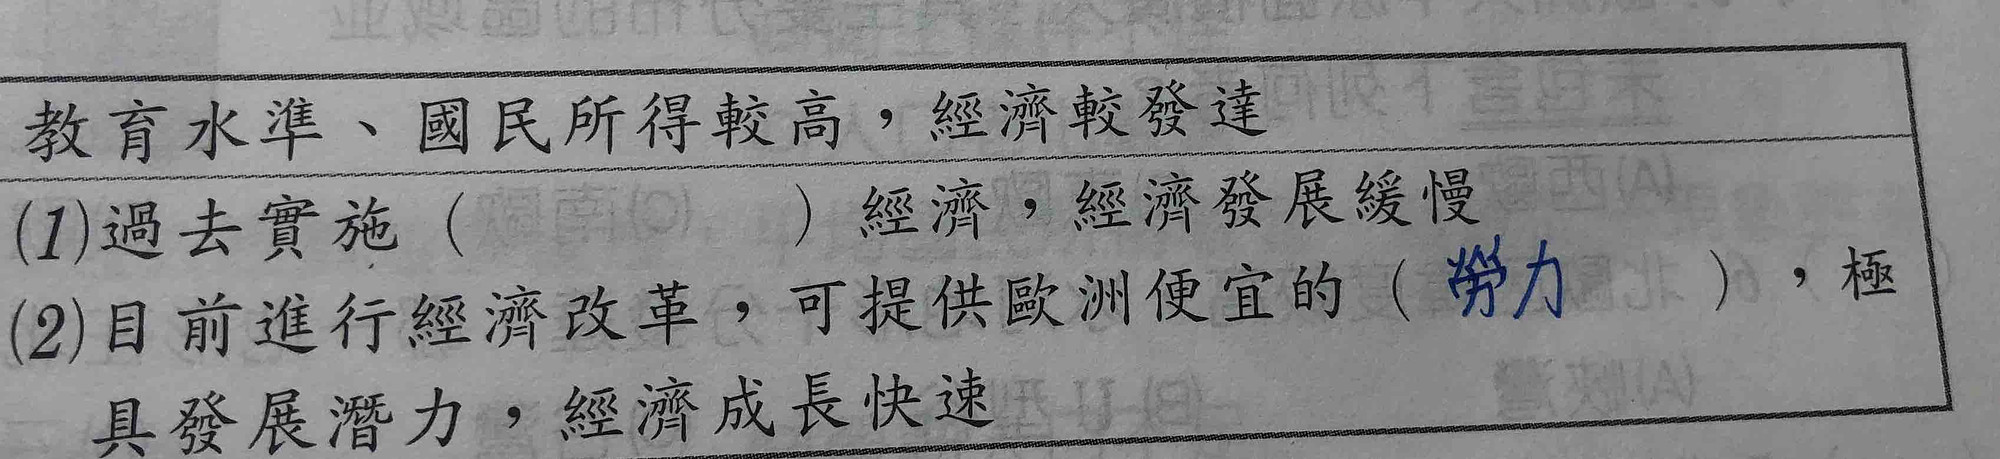 教育水準、國民所得較高，經濟較發達
(1)過去實施（　　　　）經濟，經濟發展緩慢
(2)目前進行經濟改革，可提供歐洲便宜的（勞力　　），極
具發展潛力，經濟成長快速